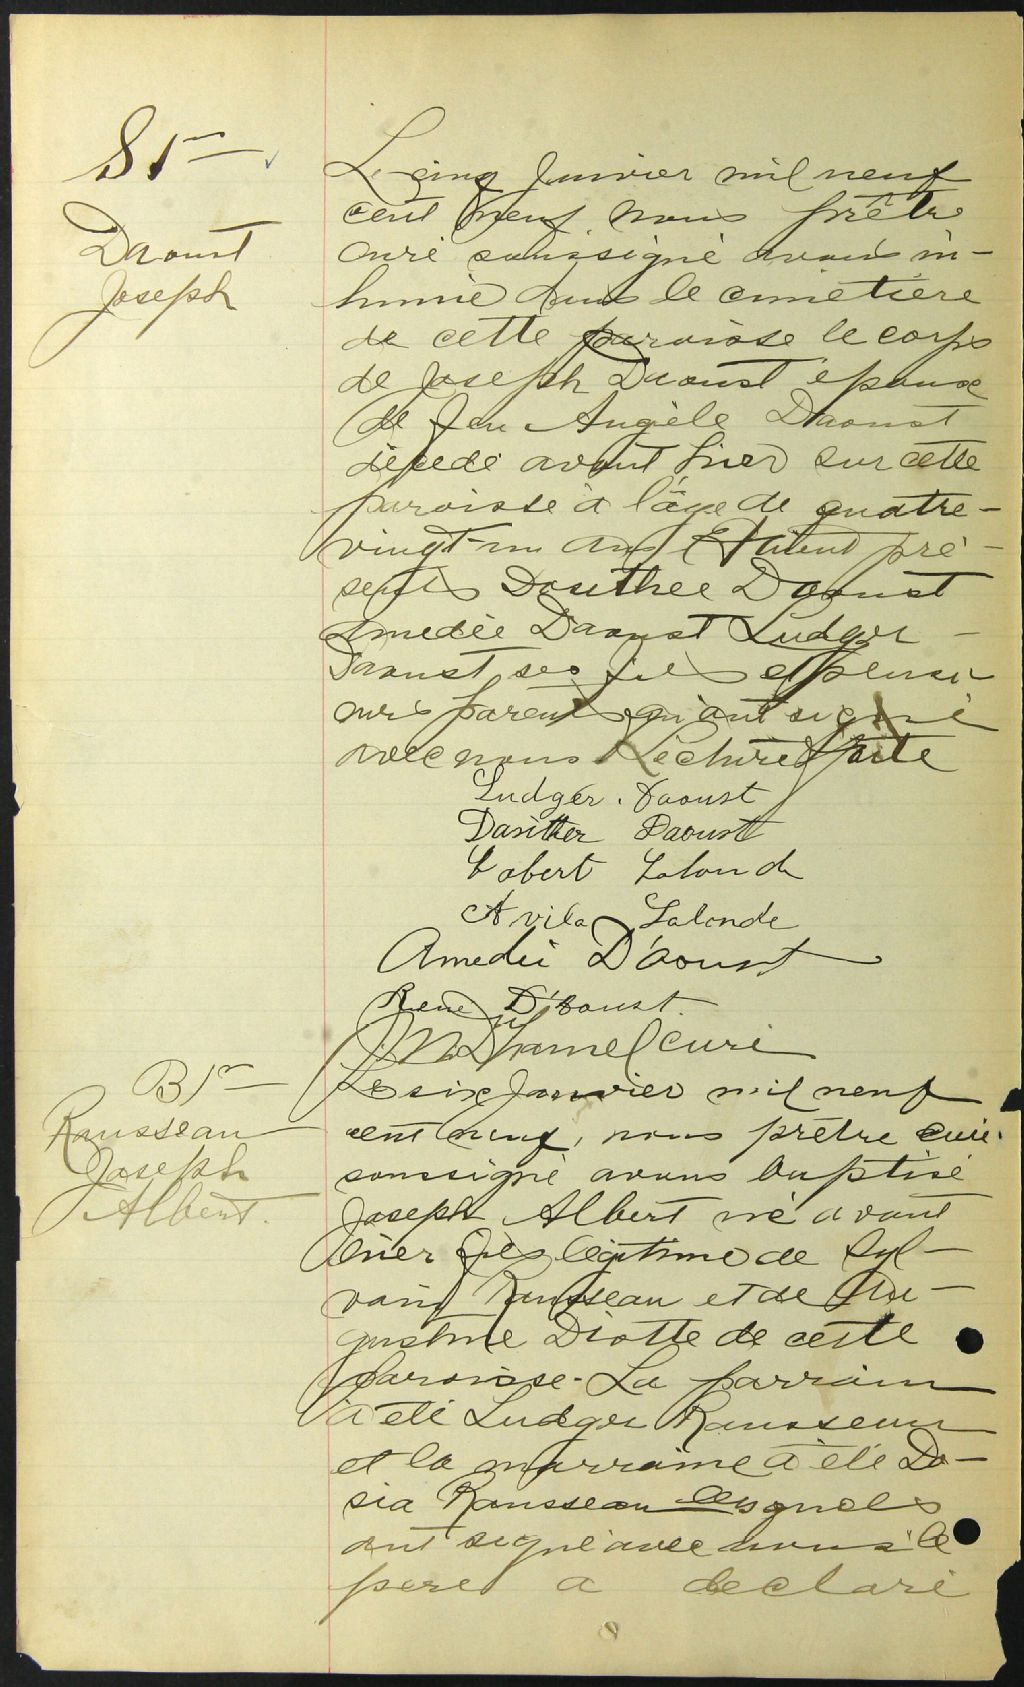 S 1re
Daoust
Joseph
Le cinq Janvier mil neuf
cent neuf nous prêtre
curé soussigné avons in-
humé dans le cimetière
de cette paroisse le corps
de Joseph Daoust époux
de feu Angèle Daoust
décédé avant hier sur cette
paroisse à l'âge de quatre-
vingt-un ans Etaient pré-
sents Dosithée Daoust
Amedée Daoust Ludger
Daoust ses fils et plusi-
eurs parents qui ont signé
avec nous Lecture faite
Ludger Daoust
Dasither Daoust
Lalonde
Avila Lalonde
Amedée D'aoust
Rene D'aoust.
curé
B 1re
Rousseau
Joseph
Albert.
Le six Janvier mil neuf
cent neuf, nous prêtre curé
soussigné avons baptisé
Joseph Albert né avant
hier fils légitime de Syl-
vain Rousseau et de Au-
gustine Diotte de cette
paroisse. La parrain
a été Ludger Rousseau
et la marraine a été Do-
sia Rousseau lesquels
ont signé avec nous le
pere a declaré